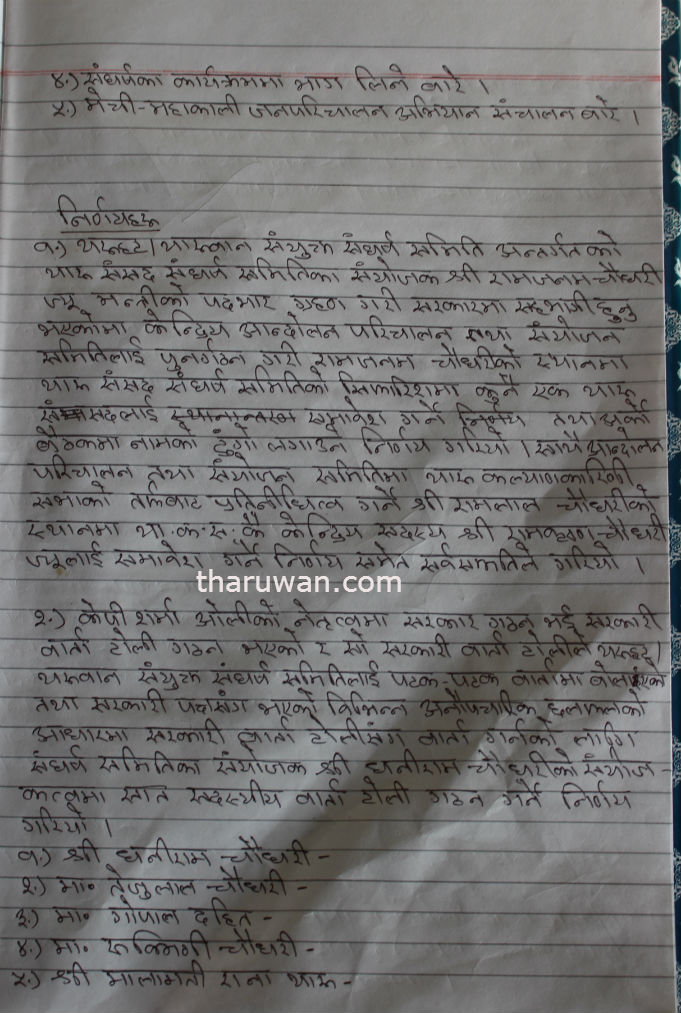 ४.) संघर्षका कार्यक्रममा भाग लिने बारे ।
५.) मेची-महाकाली जनपरिचालन अभियान संचालन बारे ।
निर्णयहरू
१.) थरूहट/थारूवान संयुक्त संघर्ष समिति अन्तर्गतको
थारू संसद संघर्ष समितिका संयोजक श्री रामजनम चौधरी
ज्यू मन्त्रीको पदभार ग्रहण गरी सरकारमा सहभागी हुनु
भएकोमा केन्द्रिय आन्दोलन परिचालन तथा संयोजन
समितिलाई पुनर्गठन गरी रामजनम चौधरीको स्थानमा
थारू संसद संघर्ष समितिको सिफारिशमा कुनै एक थारू
सदलाई समावेश गर्ने निर्णय तथा अर्को
बैठकमा नामको टुंगो लगाउने निर्णय गरियो । साथै आन्दोलन
परिचालन तथा संयोजन समितिमा थारू कल्याणकारिणी
सभाको तर्फबाट प्रतिनीधित्व गर्ने श्री रामलाल चौधरीको
स्थानमा था.क.स. कै केन्द्रिय सदस्य श्री रामकृष्ण चौधरी
ज्यूलाई समावेश गर्ने निर्णय समेत सर्वसम्मतिले गरियो ।
tharuwan.com
२.) केपी शर्मा ओलीको नेतृत्वमा सरकार गठन भई सरकारी
वार्ता टोली गठन भएको र सो सरकारी वार्ता टोलीले थरूहट/
थरूवान संयुक्त संघर्ष समितिलाई पटक-पटक वार्तामा बोलाएको
तथा सरकारी पक्षसंग भएको विभिन्न अनौपचारिक छलफलको
आधारमा सरकारी वार्ता टोलीसंग वार्ता गर्नको लागि
संघर्ष समितिका संयोजक श्री धनीराम चौधरीको संयोज-
कत्वमा सात सदस्यीय वार्ता टोली गठन गर्ने निर्णय
गरियो ।
१.) श्री धनीराम चौधरी -
२.) मा. तेजुलाल चौधरी -
३.) मा. गोपाल दहित -
४.) मा. रूक्मिणी चौधरी -
५.) श्री मालामती राना थारू -